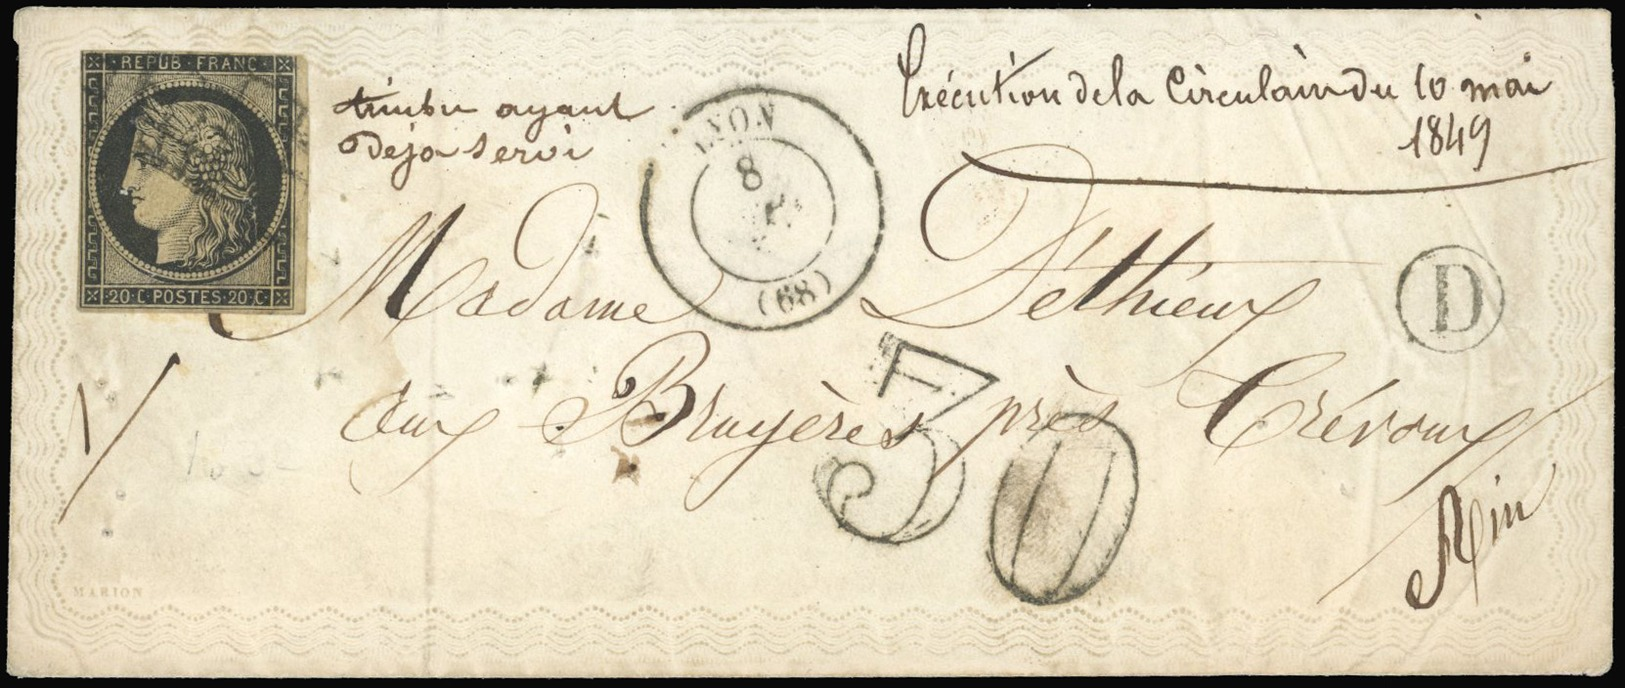 REPUB·FRANC
20·C·POSTES·20·C
timbre ayant
Déja servi
NON
8
(68)
Exécution de la Circulaire du 10 mai
1849
Madame Déthieux
D
aux Bruyères près Trévoux
Ain
1/
30
MARION